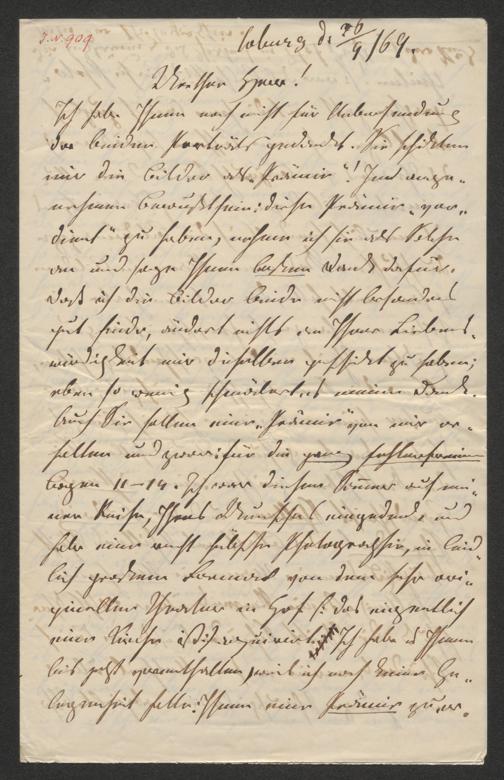 J.N. 909
Coburg d. 26/9/69.
Werther Herr!
Ich habe Ihnen noch nicht für Uebersendung
der beiden Porträts gedankt. Sie schickten
mir die Bilder als "Prämie"! Im ange-
nehmen Bewußtsein: diese Prämie "ver-
dient" zu haben, nehme ich sie als solche
an und sage Ihnen besten Dank dafür.
Daß ich die Bilder beide nicht besonders
gut finde, ändert nichts an Ihrer Liebens-
würdigkeit mir dieselben geschickt zu haben;
eben so wenig schmälert es meinen Dank.
Auch Sie sollen eine "Prämie" von mir er-
halten und zwar: für die ganz fehlerfreien
Bogen 11-14. Ich war diesen Sommer auf mei-
ner Reise, Ihres Wunsches eingedenk und
habe eine recht hübsche Photographie, in leid-
lich großem Format von dem sehr ori-
ginellen Theater in Hof (: das eigentlich
eine Kirche ist :) acquirirt. Ich habe es Ihnen
bis jetzt vorenthalten, weil ich noch keine Ge-
legenheit hatte: Ihnen eine Prämie zu er-